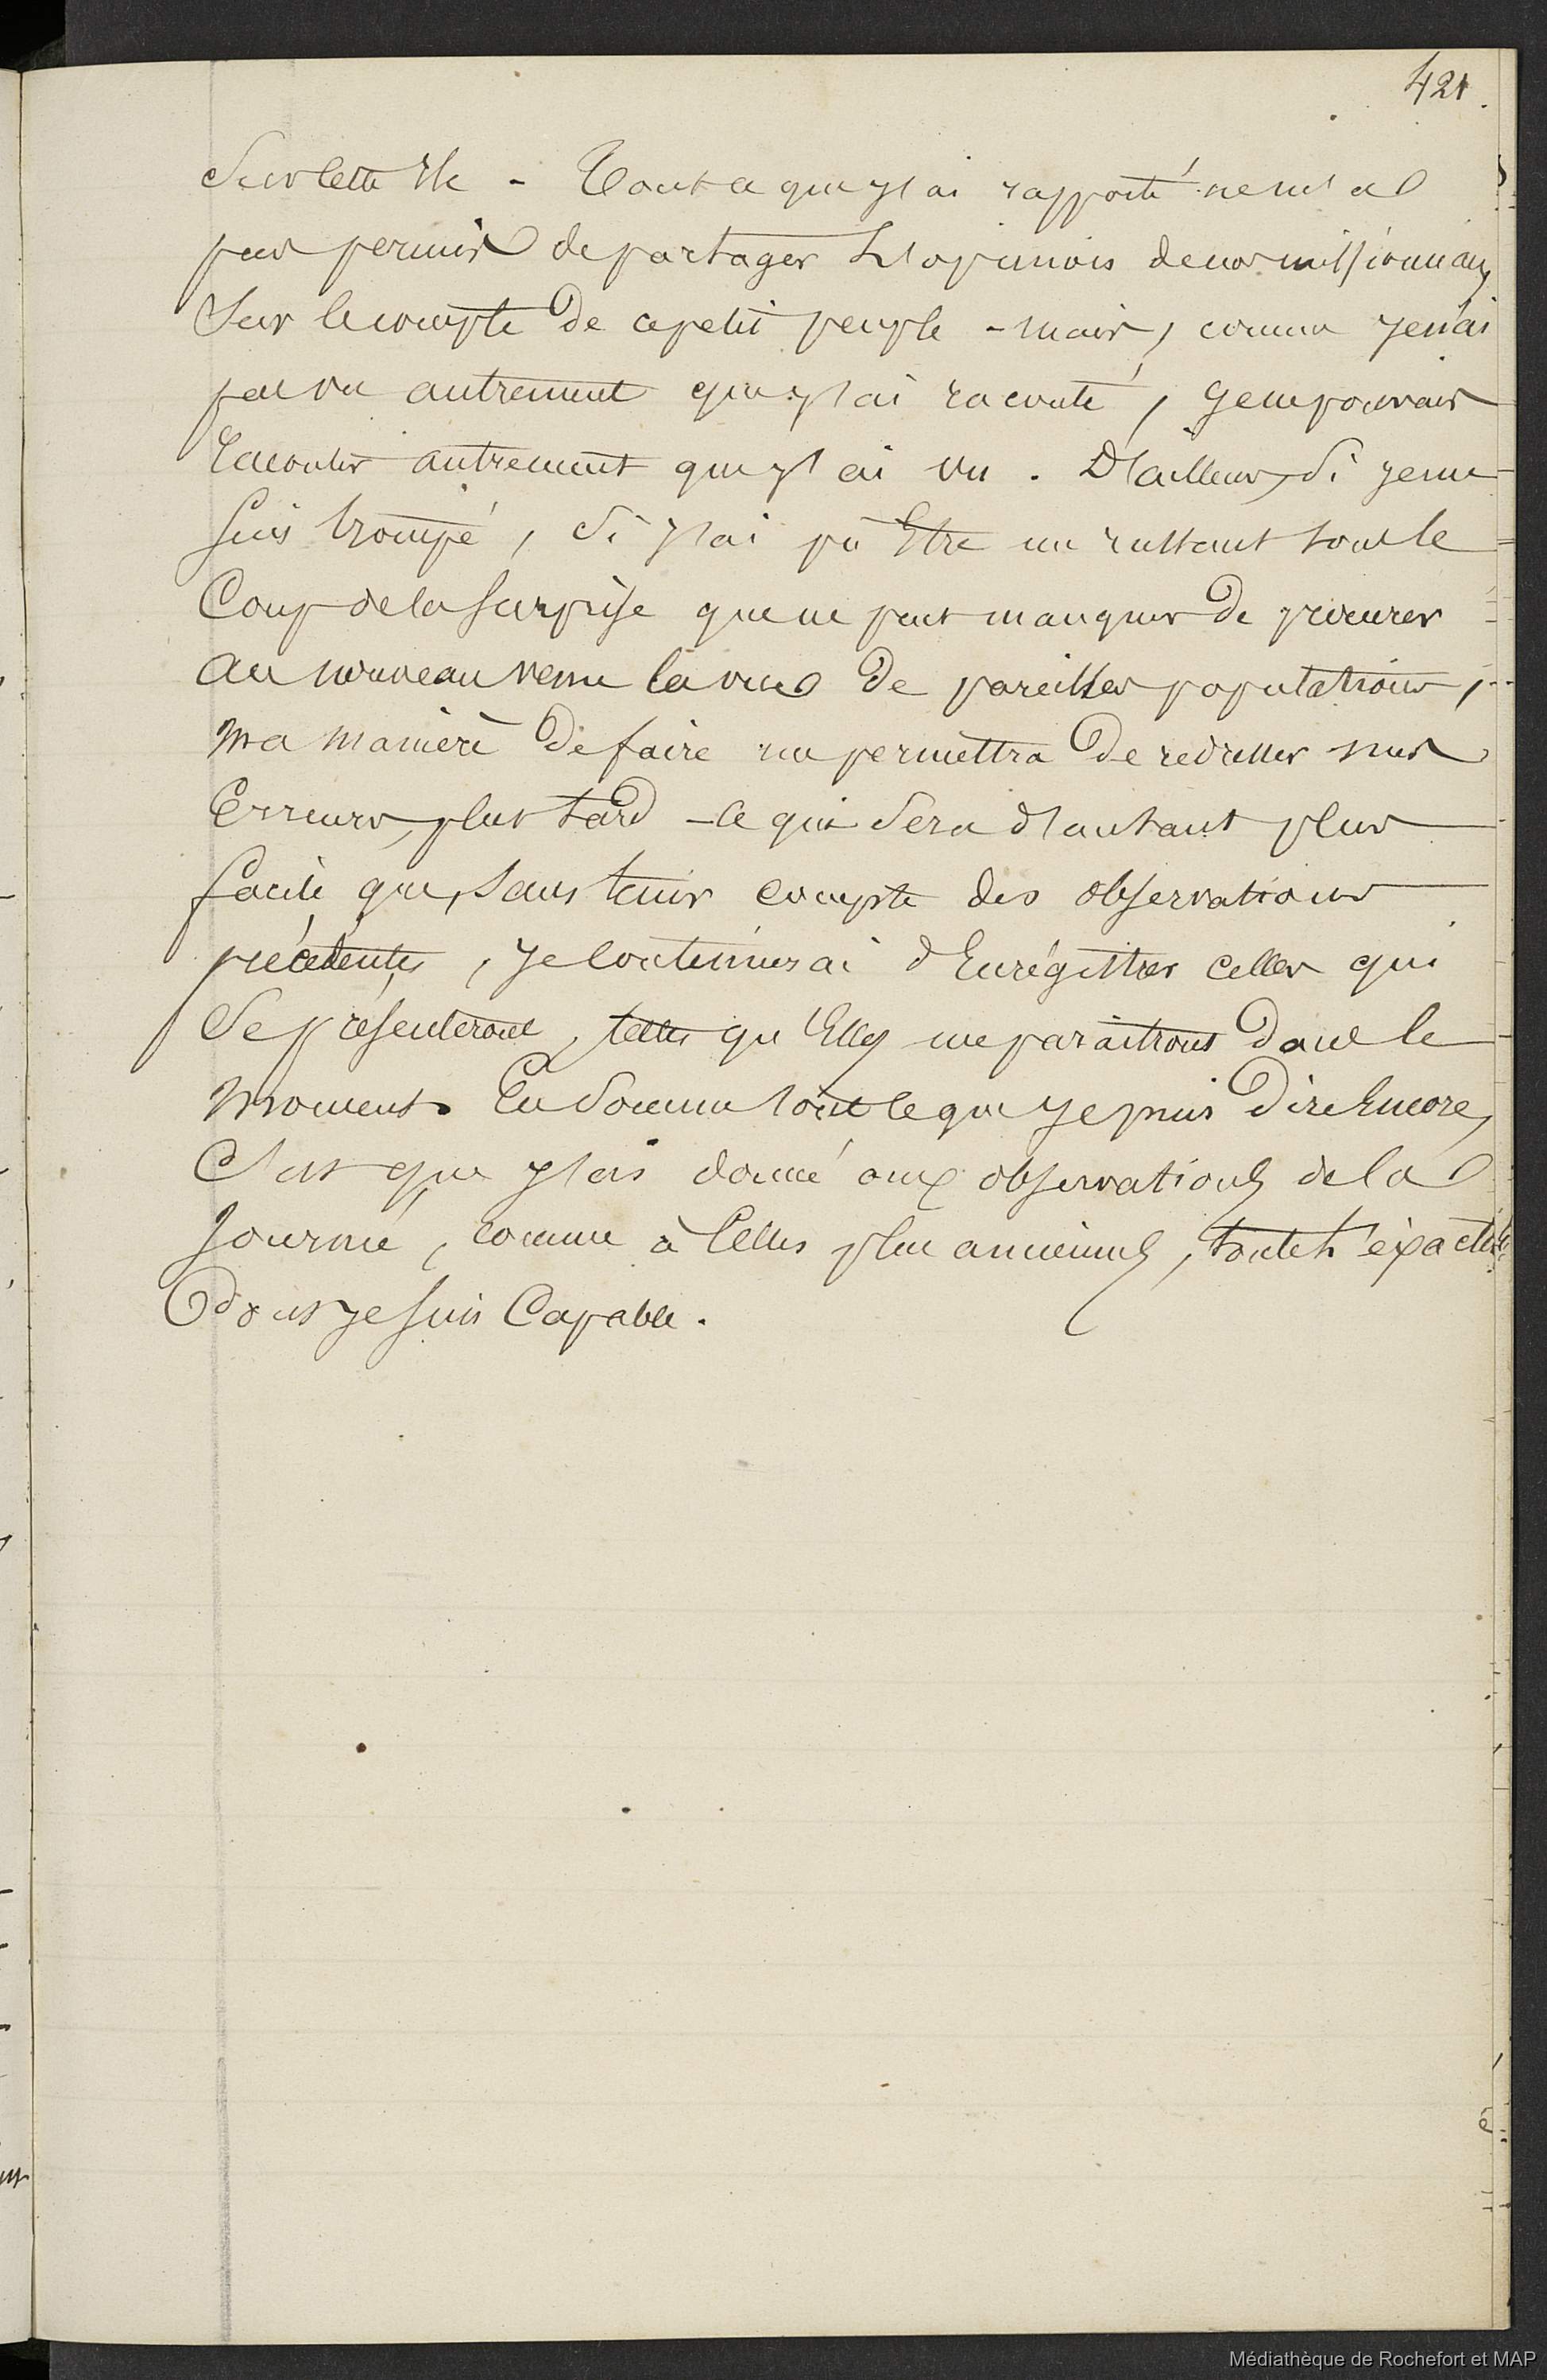 421.
Sur cette Ile - Tout ce que j'ai rapporté ne m'a
pas permis de partager L'opinion de nos missionnaires
Sur le compte de ce petit peuple - mais, comme je n'ai
pas vu autrement que j'ai raconté, je ne pouvais
raconter autrement que j'ai vu. D'ailleurs, Si je me
suis trompé, Si j'ai pû Etre un instant sous le
Coup de la surprise que ne peut manquer de procurer
au nouveau venu la vue de pareilles populations,
Ma manière de faire me permettra De redresser mes
Erreurs, plus tard - ce qui Sera d'autant plus
facile que, sans tenir compte des observations
précédentes, je continuerai d'Enrégistrer celles qui
Se présenteront, telles qu'Elles me paraîtront Dans le
Moment. En Somme tout ce que je puis Dire Encore,
C'est que j'ai donné aux observations de la
Journée, comme à Celles plus anciennes, toute l'éxactitude
dont je suis Capable.
Médiathèque de Rochefort et MAP